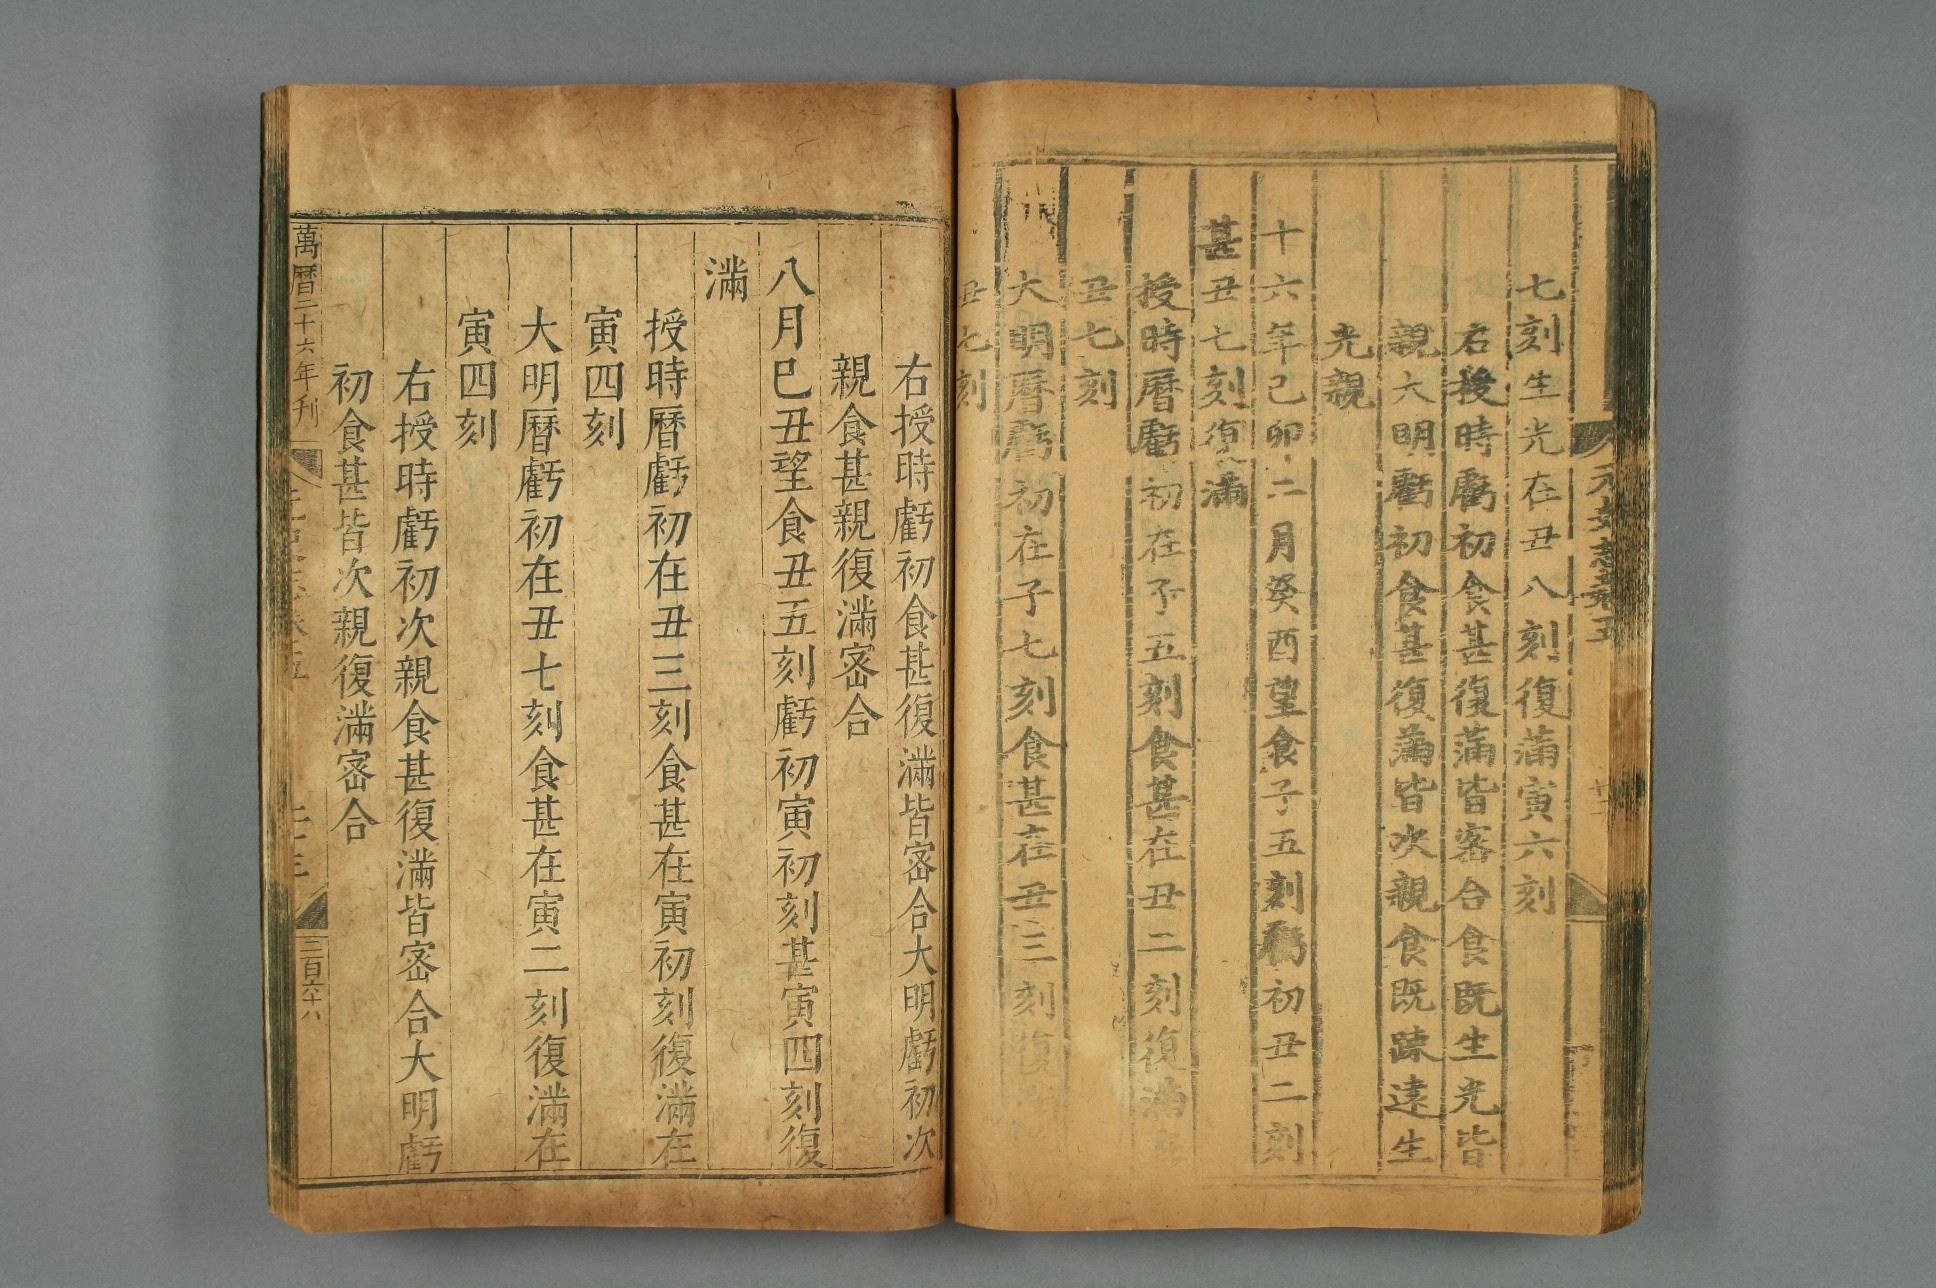 元史志卷五
七刻生光在丑八刻復滿寅六刻
右授時虧初食甚復滿皆密合食既生光皆
親大明虧初食甚復滿皆次親食既踈遠生
光親
十六年己卯二月癸酉望食子五刻虧初丑二刻
甚丑七刻復滿
授時曆虧初在子五刻食甚在丑二刻復滿在
丑七刻
大明曆虧初在子七刻食甚在丑三刻復滿
丑七刻
右授時虧初食甚復滿皆密合大明虧初次
親食甚親復滿密合
八月巳丑望食丑五刻虧初寅初刻甚寅四刻復
滿
授時曆虧初在丑三刻食甚在寅初刻復滿在
寅四刻
大明曆虧初在丑七刻食甚在寅二刻復滿在
寅四刻
右授時虧初次親食甚復滿皆密合大明虧
初食甚皆次親復滿密合
萬曆二十六年刊
二十三
二百六十八